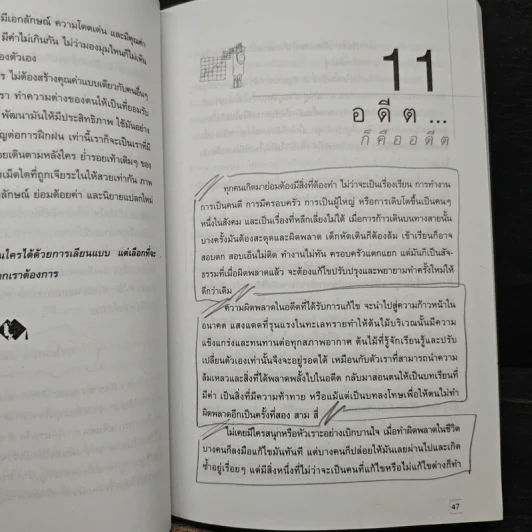 มีเอกลักษณ์ ความโดดเด่น และมีคุณค่า
มีค่าไม่เกินกัน ไม่ว่ามองมุมไหนก็ไม่เกิน
องตัวเอง
ร ไม่ต้องสร้างคุณค่าแบบเดียวกับคนอื่นๆ
รา ทำความต่างของตนให้เป็นที่ยอมรับ
พัฒนามันให้มีประสิทธิภาพ ใช้มันอย่าง
ญต่อการฝึกฝน เท่านี้เราก็จะเป็นเราที่มี
อยเดินตามหลังใคร ย่ำรอยเท้าเดิมๆ ของ
เม็ดใดที่ถูกเจียระไนให้สวยเท่ากัน ภาพ
ลักษณ์ ย่อมด้อยค่า และนิยายแปลกใหม่
นใครได้ด้วยการเลียนแบบ แต่เลือกที่จะ
กเราต้องการ
11
อดีต...
ก็คืออดีต
ทุกคนเกิดมาย่อมต้องมีสิ่งที่ต้องทำ ไม่ว่าจะเป็นเรื่องเรียน การทำงาน
การเป็นคนดี การมีครอบครัว การเป็นผู้ใหญ่ หรือการเติบโตขึ้นเป็นคนๆ
หนึ่งในสังคม และเป็นเรื่องที่หลีกเลี่ยงไม่ได้ เมื่อการก้าวเดินบนทางสายนั้น
บางครั้งมันต้องสะดุดและผิดพลาด เด็กหัดเดินก็ต้องล้ม เข้าเรียนก็อาจ
สอบตก สอบเอ็นไม่ติด ทำงานไม่ทัน ครอบครัวแตกแยก แต่มันก็เป็นสัจ-
ธรรมที่เมื่อผิดพลาดแล้ว จะต้องแก้ไขปรับปรุงและพยายามทำครั้งใหม่ให้
ดีกว่าเดิม
ความผิดพลาดในอดีตที่ได้รับการแก้ไข จะนำไปสู่ความก้าวหน้าใน
อนาคต แสงแดดที่รุนแรงในทะเลทรายทำให้ต้นไม้บริเวณนั้นมีความ
แข็งแกร่งและทนทานต่อทุกสภาพอากาศ ต้นไม้ที่รู้จักเรียนรู้และปรับ
เปลี่ยนตัวเองเท่านั้นจึงจะอยู่รอดได้ เหมือนกับตัวเราที่สามารถนำความ
ล้มเหลวและสิ่งที่ได้พลาดพลั้งไปในอดีต กลับมาสอนตนให้เป็นบทเรียนที่
มีค่า เป็นสิ่งที่มีความท้าทาย หรือแม้แต่เป็นบทลงโทษเพื่อให้ตนไม่ทำ
ผิดพลาดอีกเป็นครั้งที่สอง สาม สี่
ไม่เคยมีใครสนุกหรือหัวเราะอย่างเบิกบานใจ เมื่อทำผิดพลาดในชีวิต
บางคนก็ลงมือแก้ไขมันทันที แต่บางคนก็ปล่อยให้มันเลยผ่านไปและเกิด
ซ้ำอยู่เรื่อยๆ แต่มีสิ่งหนึ่งที่ไม่ว่าจะเป็นคนที่แก้ไขหรือไม่แก้ไขต่างก็ทำ
47